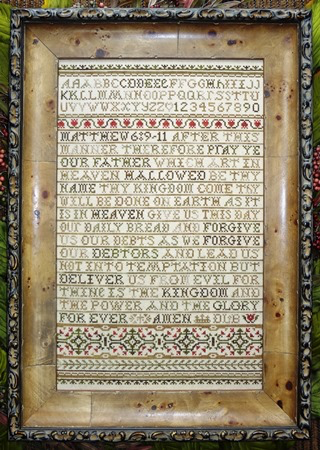 AAABBCCDDEEEFFGGHHIIJJ
KKLLMMNNOOPPQQRRSSTTU
UVVWWXXYYZZ01234567890
MATTHEW 6:9-11 AFTER THIS
MANNER THEREFORE PRAY YE
OUR FATHER WHICH ART IN
HEAVEN HALLOWED BE THY
NAME THY KINGDOM COME THY
WILL BE DONE ON EARTH AS IT
IS IN HEAVEN GIVE US THIS DAY
OUR DAILY BREAD AND FORGIVE
US OUR DEBTS AS WE FORGIVE
OUR DEBTORS AND LEAD US
NOT INTO TEMPTATION BUT
DELIVER US FROM EVIL FOR
THINE IS THE KINGDOM AND
THE POWER AND THE GLORY
FOR EVER AMEN